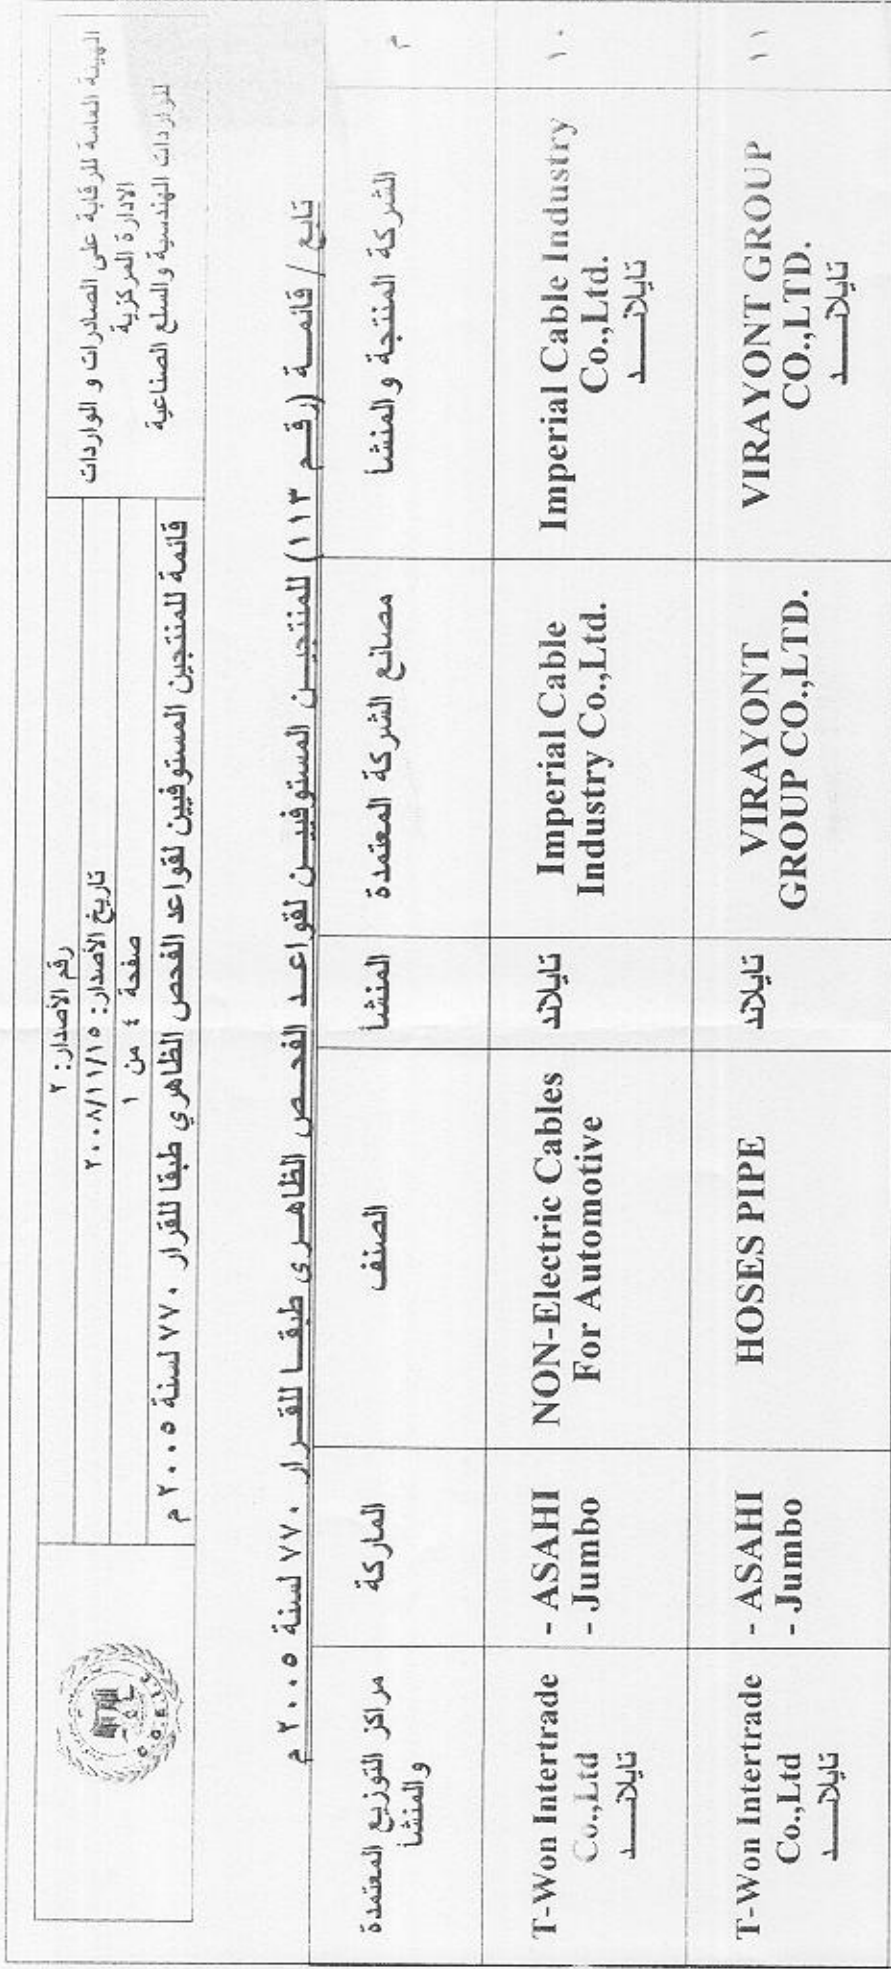 الهيئة العامة للرقابة على الصادرات و الواردات
الادارة المركزية
للواردات الهندسية والسلع الصناعية
رقم الأصدار: ٢
تاريخ الأصدار: ٢٠٠٨/١١/١٥
صفحة ٤ من ١
قائمة للمنتجين المستوفيين لقواعد الفحص الظاهري طبقا للقرار ٧٧٠ لسنة ٢٠٠٥ م
G.O.E.I.C
تابع / قائمة (رقم ١١٣) للمنتجين المستوفيين لقواعد الفحص الظاهرى طبقا للقرار ٧٧٠ لسنة ٢٠٠٥ م
م
الشركة المنتجة والمنشأ
مصانع الشركة المعتمدة
المنشأ
الصنف
الماركة
مراكز التوزيع المعتمدة
والمنشأ
١٠
Imperial Cable Industry
Co.,Ltd.
تايلاند
Imperial Cable
Industry Co.,Ltd.
تايلاند
NON-Electric Cables
For Automotive
- ASAHI
- Jumbo
T-Won Intertrade
Co.,Ltd
تايلاند
١١
VIRAYONT GROUP
CO.,LTD.
تايلاند
VIRAYONT
GROUP CO.,LTD.
تايلاند
HOSES PIPE
- ASAHI
- Jumbo
T-Won Intertrade
Co.,Ltd
تايلاند